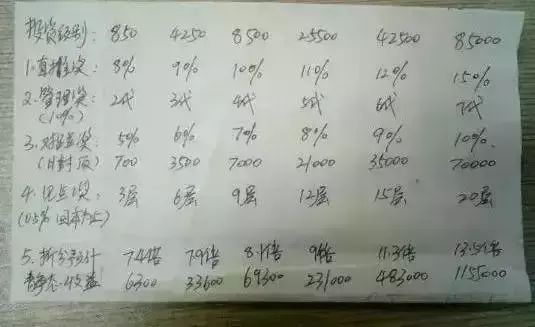 投资级别: 850 4250 8500 25500 42500 85000
1.直推奖: 8% 9% 10% 11% 12% 15%
2.管理奖: 2代 3代 4代 5代 6代 7代
(10%)
3.对碰奖 5% 6% 7% 8% 9% 10%
(日封顶) 700 3500 7000 21000 35000 70000
4.见点奖 3层 6层 9层 12层 15层 20层
(0.5% 回本为止)
5.拆分预计 7.4倍 7.9倍 8.1倍 9倍 11.3倍 13.5倍
静态收益 6300 33600 69300 231000 483000 1155000